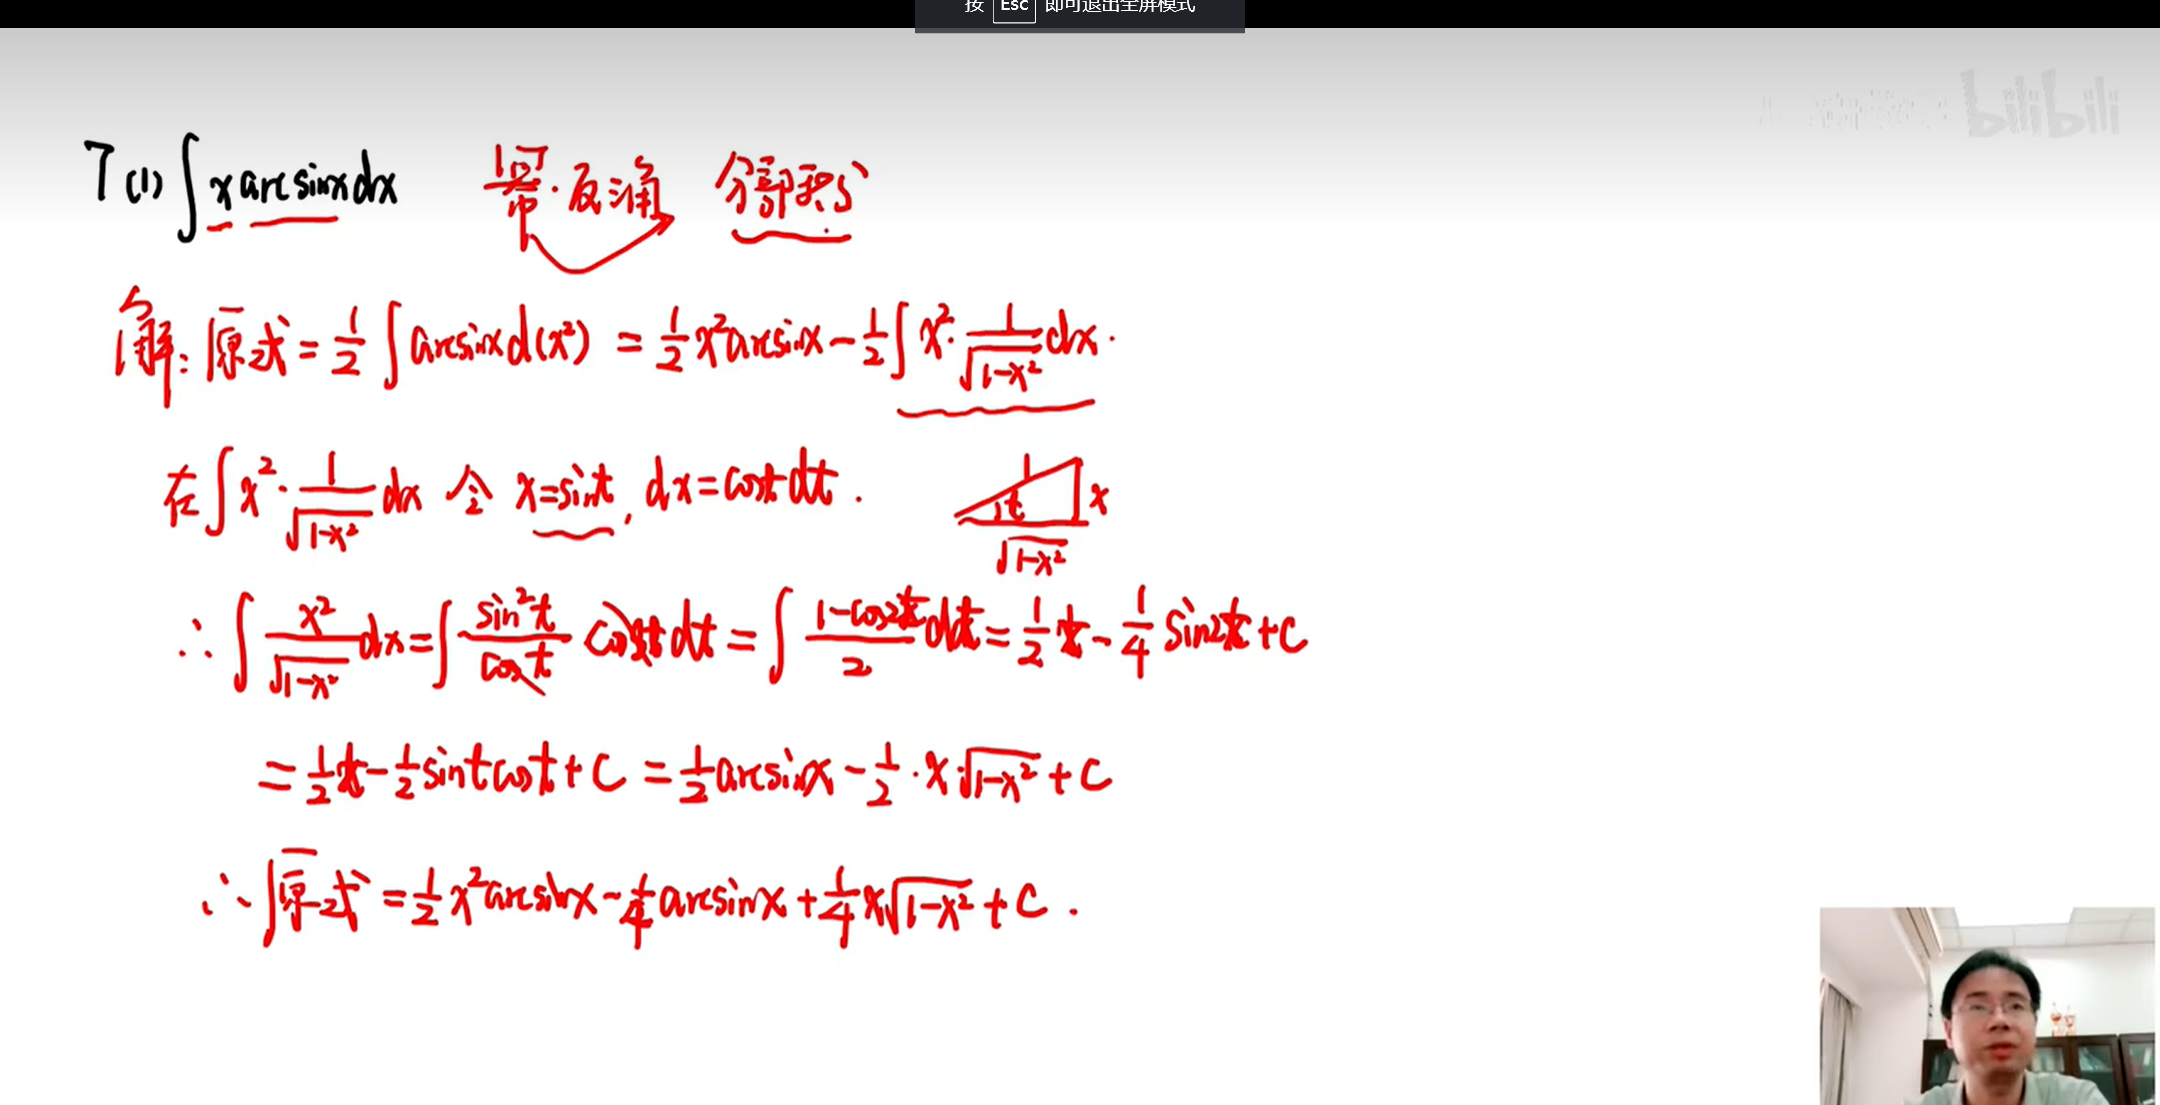 按 Esc 即可退出全屏模式
bilibili
7(1) ∫x arcsinx dx 幂·反 分部积分
解: 原式 = 1/2 ∫arcsinx d(x²) = 1/2 x² arcsinx - 1/2 ∫x²·1/√(1-x²) dx.
在∫x²·1/√(1-x²) dx 令 x=sint, dx=cost dt. 1 t x √(1-x²)
∴ ∫x²/√(1-x²) dx = ∫sin²t/cost cost dt = ∫(1-cos2t)/2 dt = 1/2 t - 1/4 sin2t + C
= 1/2 t - 1/2 sint cost + C = 1/2 arcsinx - 1/2·x√(1-x²) + C
∴ 原式 = 1/2 x² arcsinx - 1/4 arcsinx + 1/4 x√(1-x²) + C.